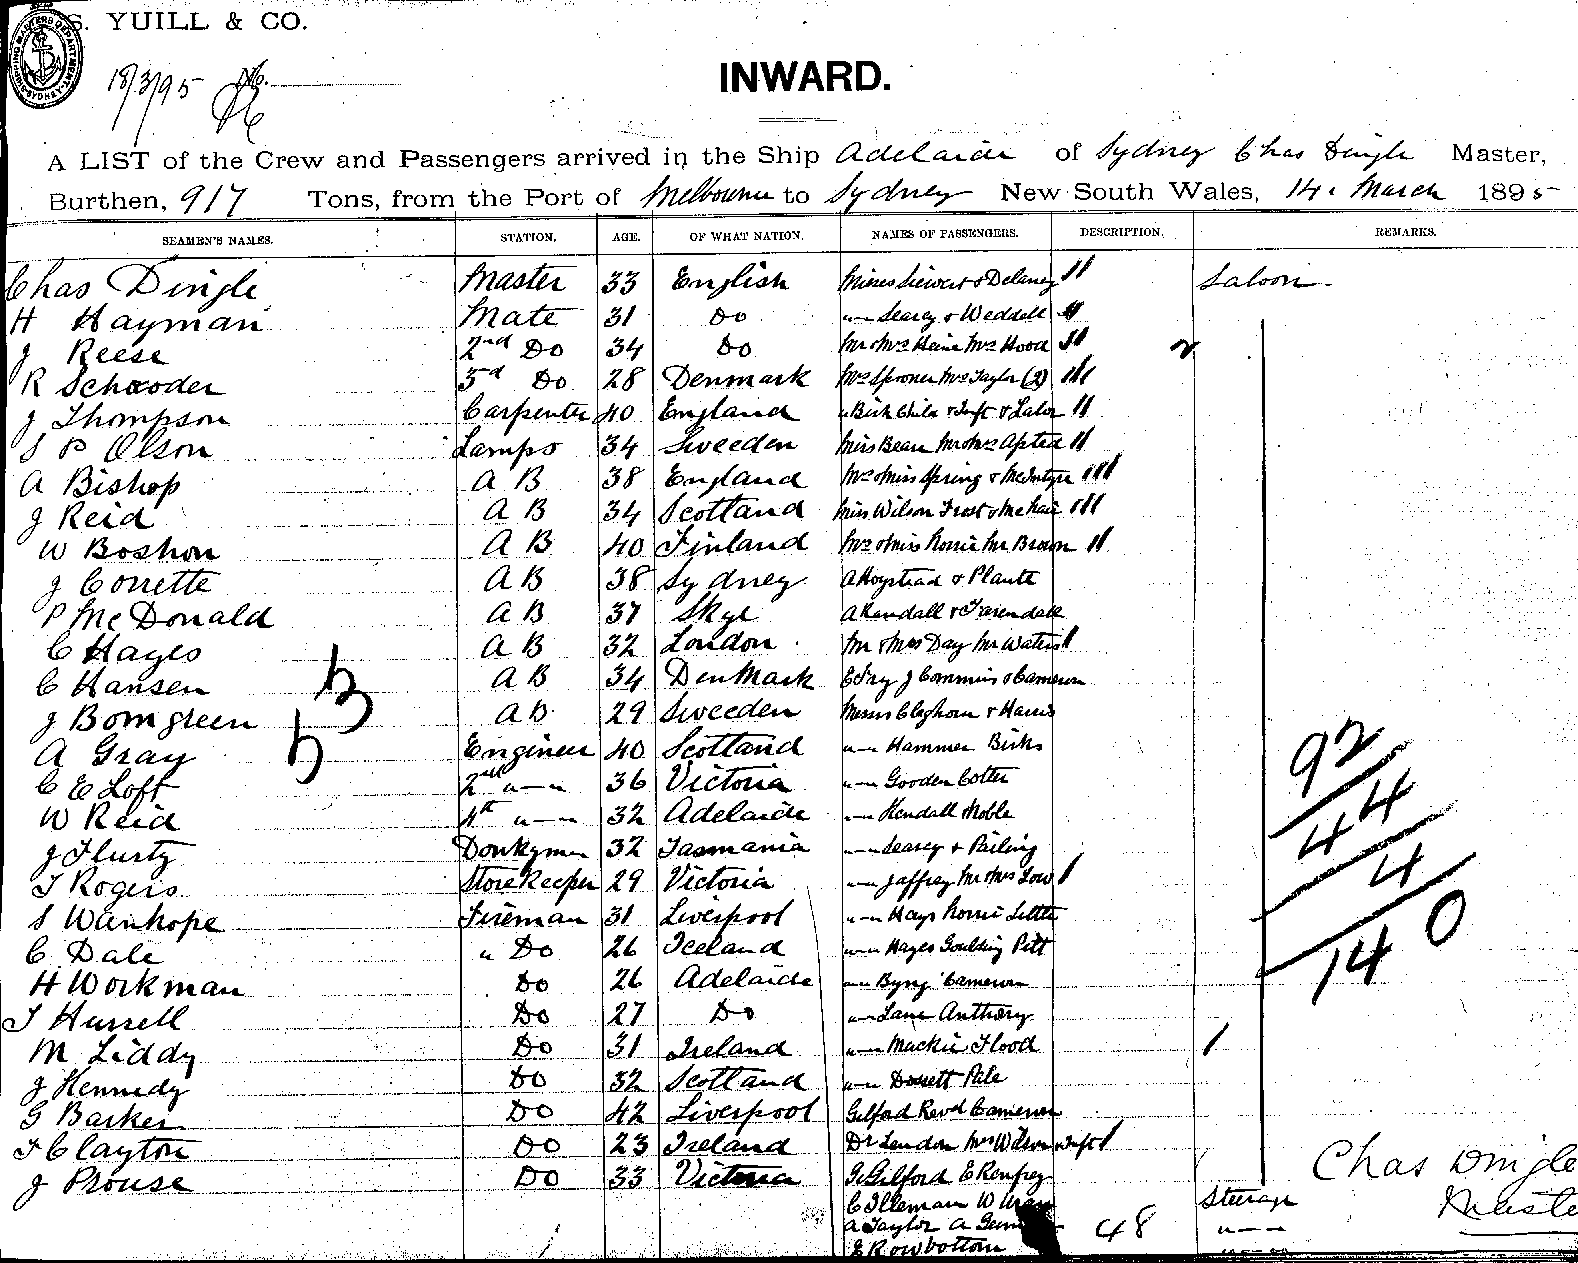 S. YUILL & CO.
18/3/95 No.
INWARD.
A LIST of the Crew and Passengers arrived in the Ship Adelaide of Sydney Chas Dingle Master,
Burthen, 917 Tons, from the Port of Melbourne to Sydney New South Wales, 14. March 1895
SEAMEN'S NAMES. STATION. AGE. OF WHAT NATION. NAMES OF PASSENGERS. DESCRIPTION. REMARKS.
Chas Dingle Master 33 English Misses Siewert & Delaney 11 Saloon.
H Hayman Mate 31 Do "—" Searcy & Weddell 11
J Reese 2nd Do 34 Do Mr & Mrs Mrs Hood 11
R Schooder 3rd Do 28 Denmark Mrs Spooner Mrs Taylor (2) 111
J Thompson Carpenter 40 England " Birk Child & Inft & Lalor 11
S P Olson Lamps 34 Sweeden Miss Bean Mr & Mrs Apted 11
A Bishop A B 38 England Mrs & Miss Spring & McIntyre 111
J Reid A B 34 Scotland Miss Wilson Frost & McNair 111
W Boshon A B 40 Finland Mrs & Miss Norrie Mr Brown 11
J Corrette A B 38 Sydney A Hoystead & Plante
P McDonald A B 37 Skye A Randall & Farendall
C Hayes A B 32 London Mr & Mrs Day Mr Waters 1
C Hansen A B 34 DenMark J Commins & Cameron
J Bomgreen A B 29 Sweeden Messrs Cleghorn & Harris
A Gray Engineer 40 Scotland "—" Hammer Birks
C E Loft 2nd "—" 36 Victoria "—" Gooden Cotter
W Reid 4th "—" 32 Adelaide "—" Kendall Noble
J Flurty Donkyman 32 Tasmania "—" Searcy & Pailing
T Rogers StoreKeeper 29 Victoria "—" Jaffrey Mr & Mrs Low 1
S Wanhope Fireman 31 Liverpool "—" Hays Norrie Little
C Dale " Do 26 Iceland "—" Hayes Goulding Pitt
H Workman Do 26 Adelaide "—" Byng Cameron
T Hussell Do 27 Do "—" Lane Anthony
M Liddy Do 31 Ireland "—" Mackie Flood 1
J Kennedy Do 32 Scotland "—" Dossett Pale
G Barker Do 42 Liverpool Gilford Revd Cameron
F Clayton Do 23 Ireland Dr Lendon Mrs Wilson & Inft 1
J Prouse Do 33 Victoria G Gilford E Renfrey
C Illeman W Steerage
A Taylor A 48 "—"
E Rowbottom
92
44
4
140
Chas Dingle